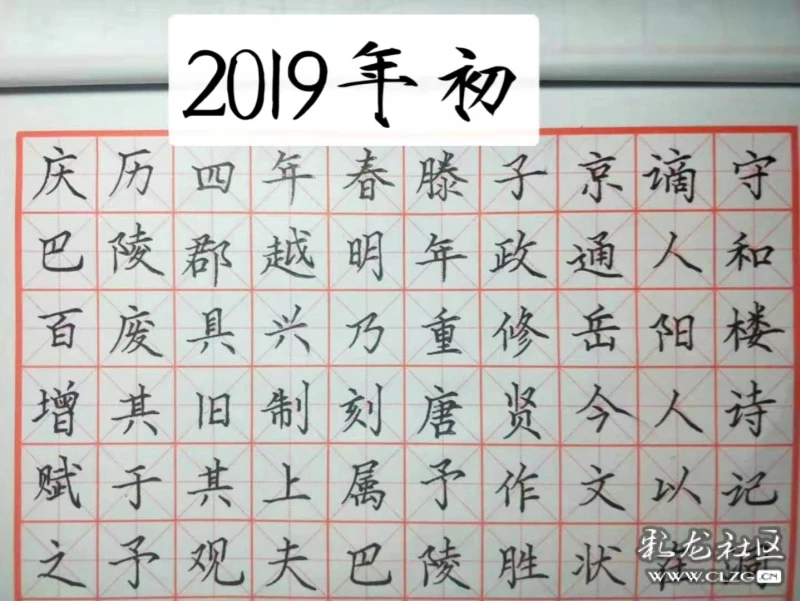 2019年初
庆历四年春滕子京谪守
巴陵郡越明年政通人和
百废具兴乃重修岳阳楼
增其旧制刻唐贤今人诗
赋于其上属予作文以记
之予观夫巴陵胜状在洞
彩龙社区
WWW.CLZG.CN